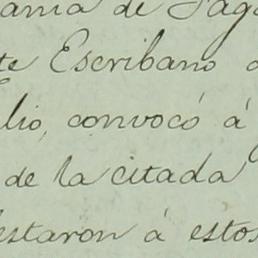 ania de Saga
te Escribano
lio, convocó á
de la citada
estaron á estos